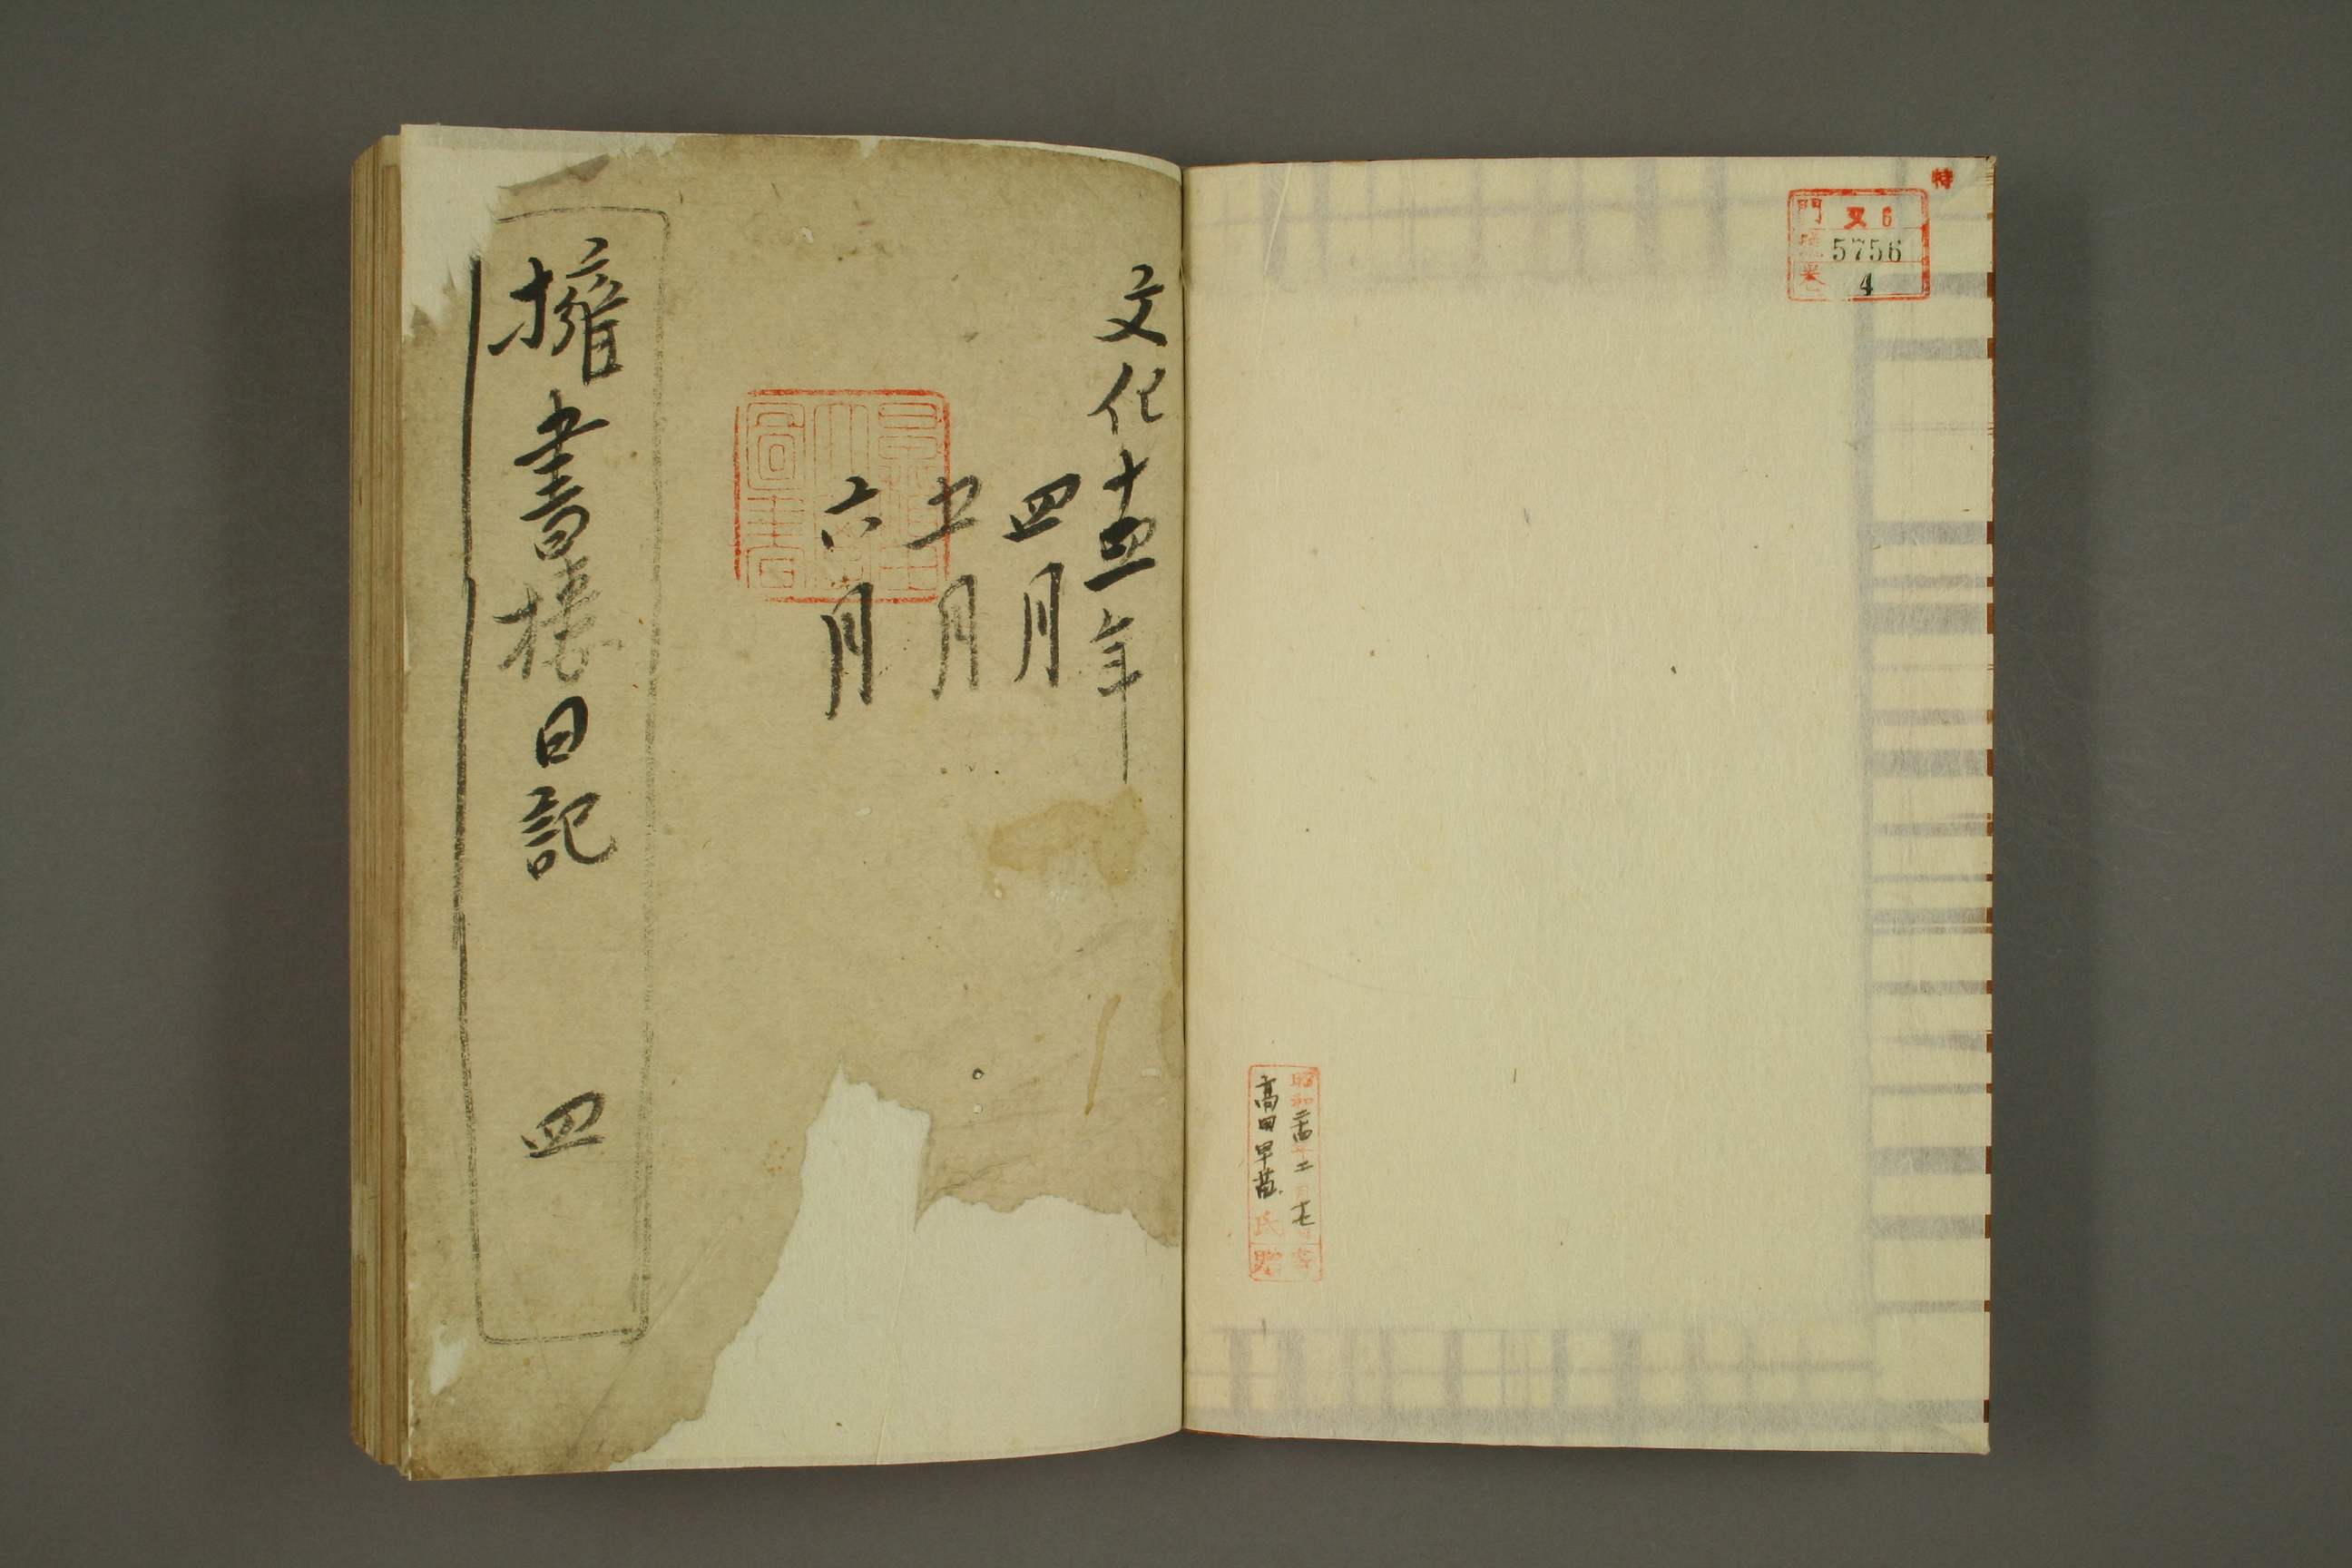 特
門 ヌ 6
號 5756
卷 4
昭和年二月十七日寄
高田早苗氏贈
文化十四年
四月
五月
六月
擁書樓日記 四